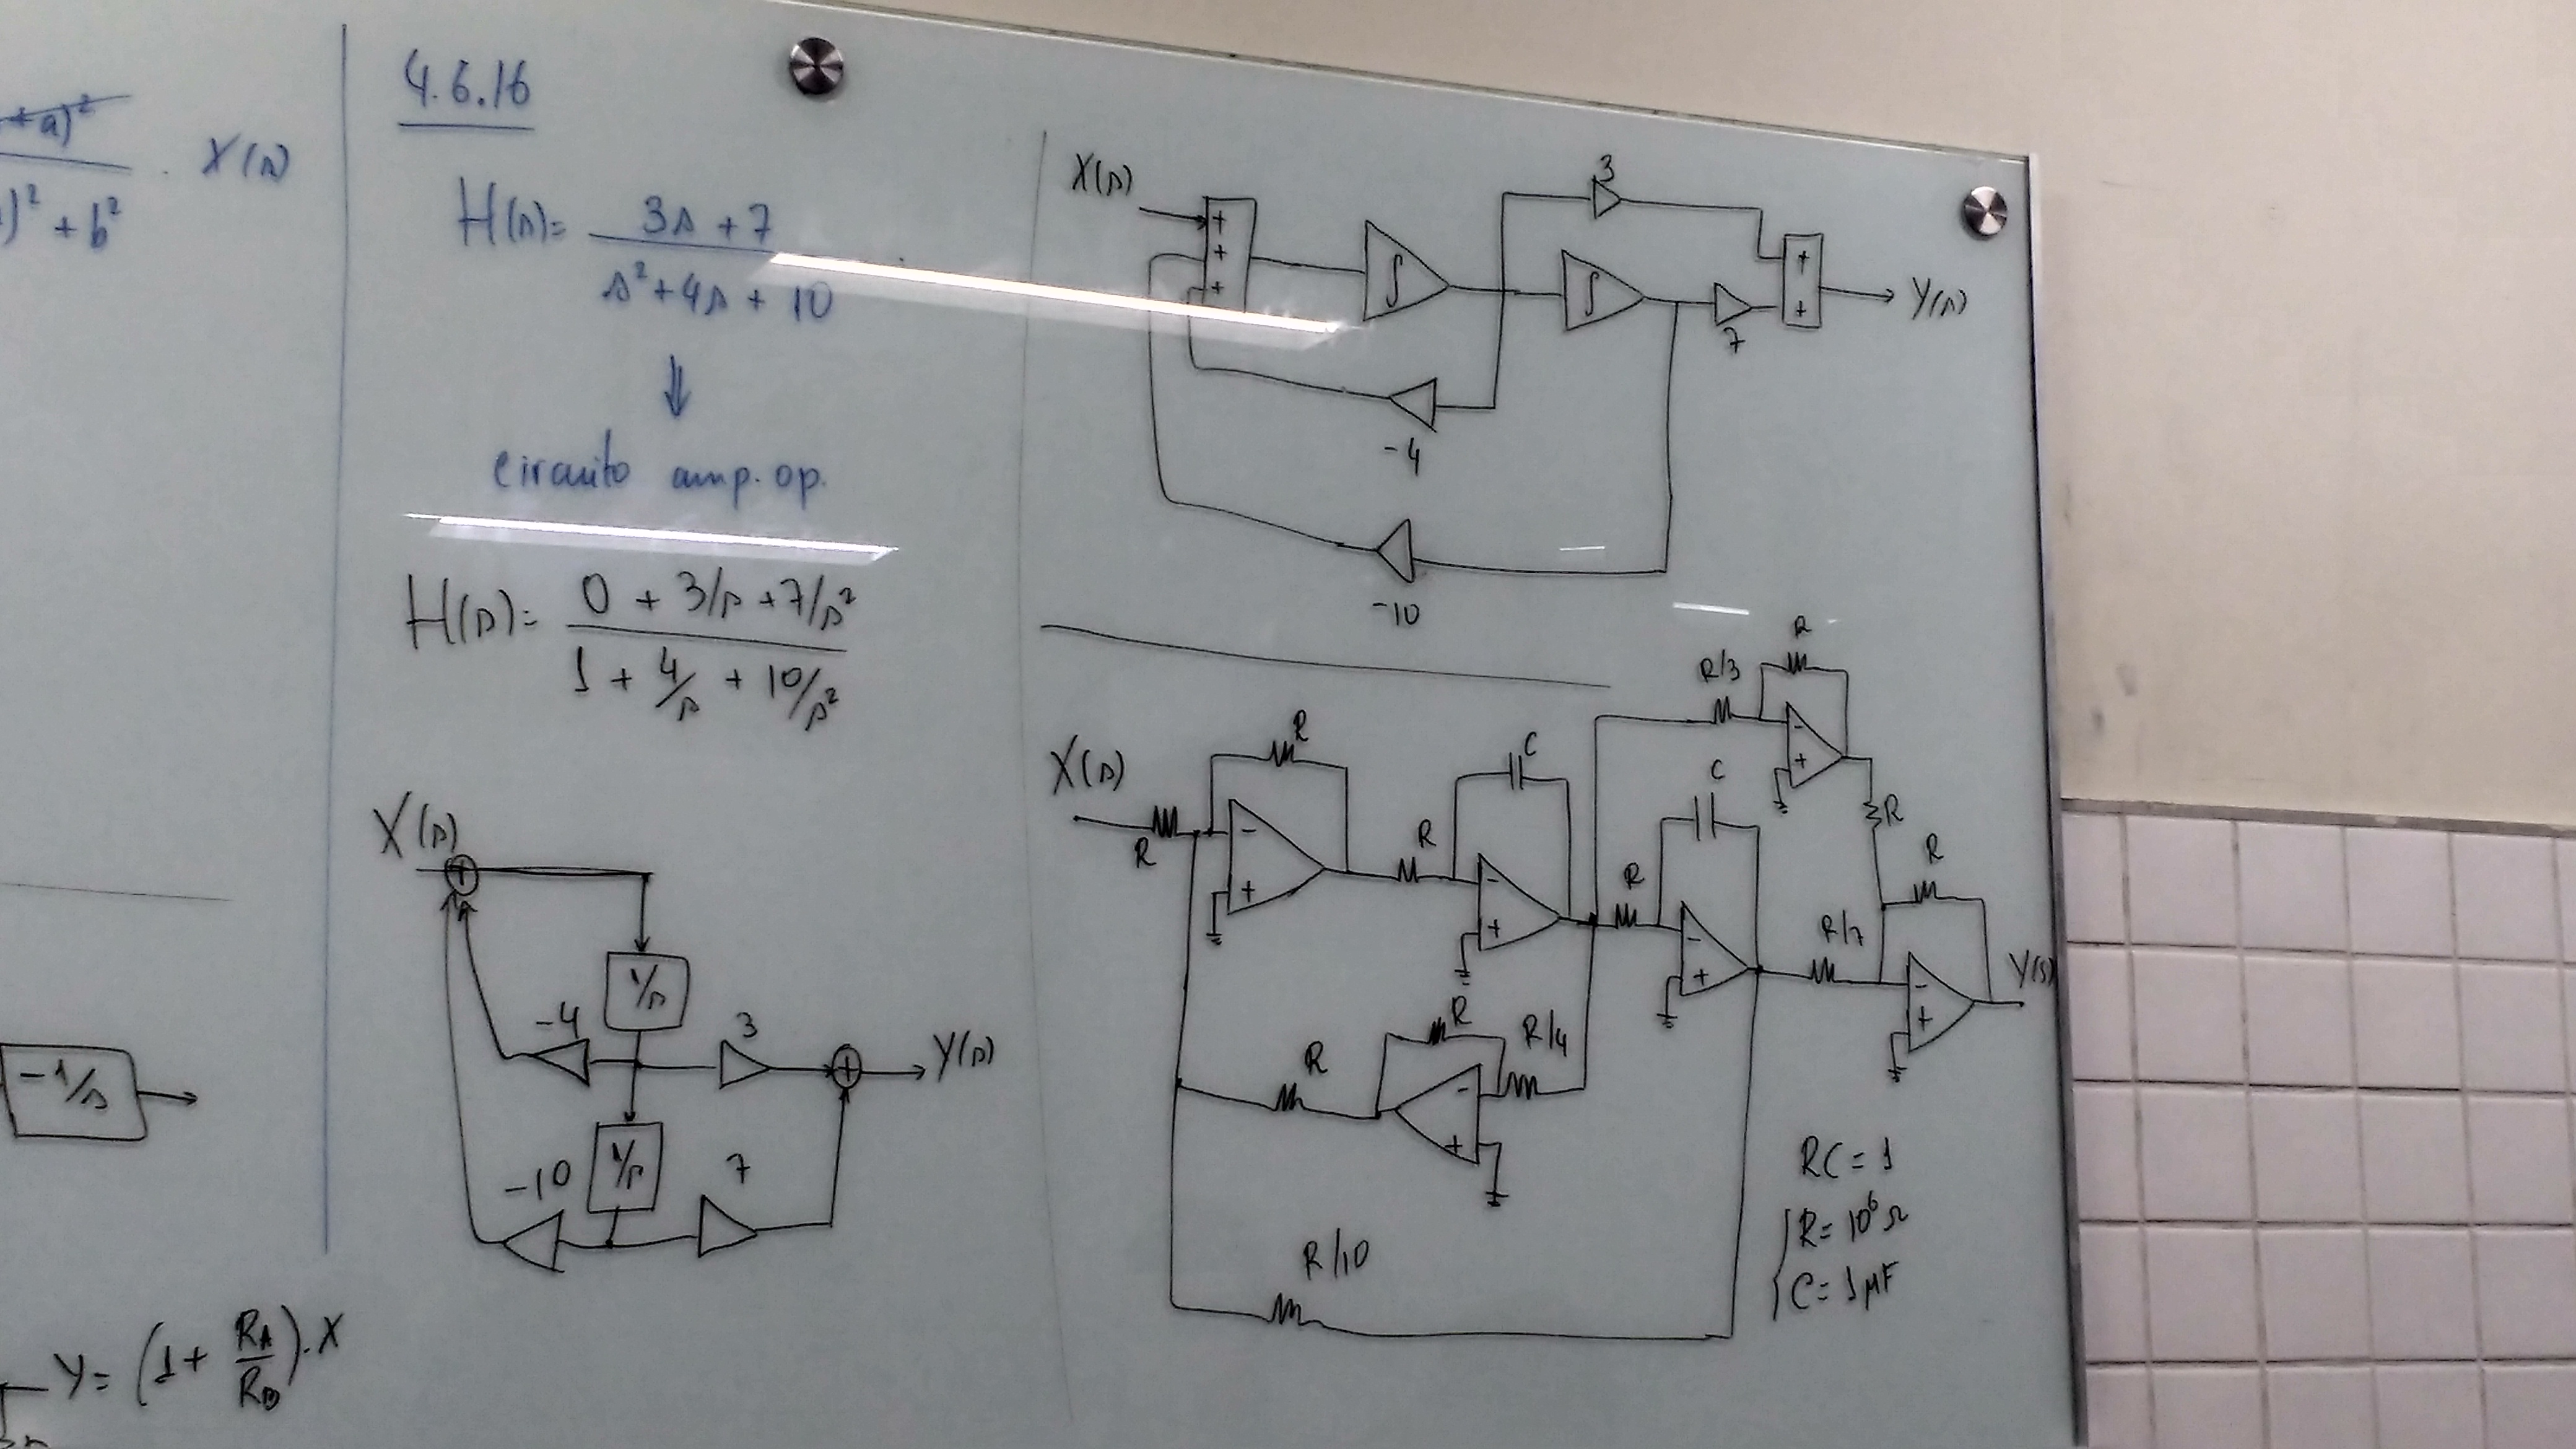 +a)²
)² + b²
. X(s)
-1/s
Y = (1 + RA/RB).X
4.6.16
H(s) = 3s + 7
s² + 4s + 10
⇓
circuito amp. op.
H(s) = 0 + 3/s + 7/s²
1 + 4/s + 10/s²
X(s)
+
1/s
-4
3
+
Y(s)
-10
1/s
7
X(s)
+
+
+
∫
3
∫
7
+
+
Y(s)
-4
-10
X(s)
R
R
-
+
R
C
-
+
R/3
R
-
+
R
R
C
-
+
R/7
R
-
+
Y(s)
R
R
R/4
-
+
R/10
RC = 1
R = 10⁶ Ω
C = 1 μF